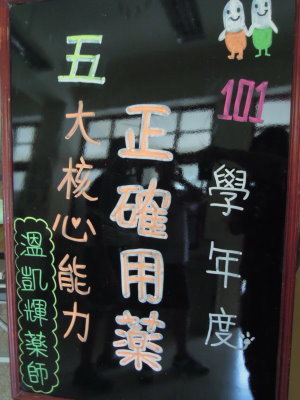 101學年度
正確用藥
五大核心能力
溫凱輝藥師